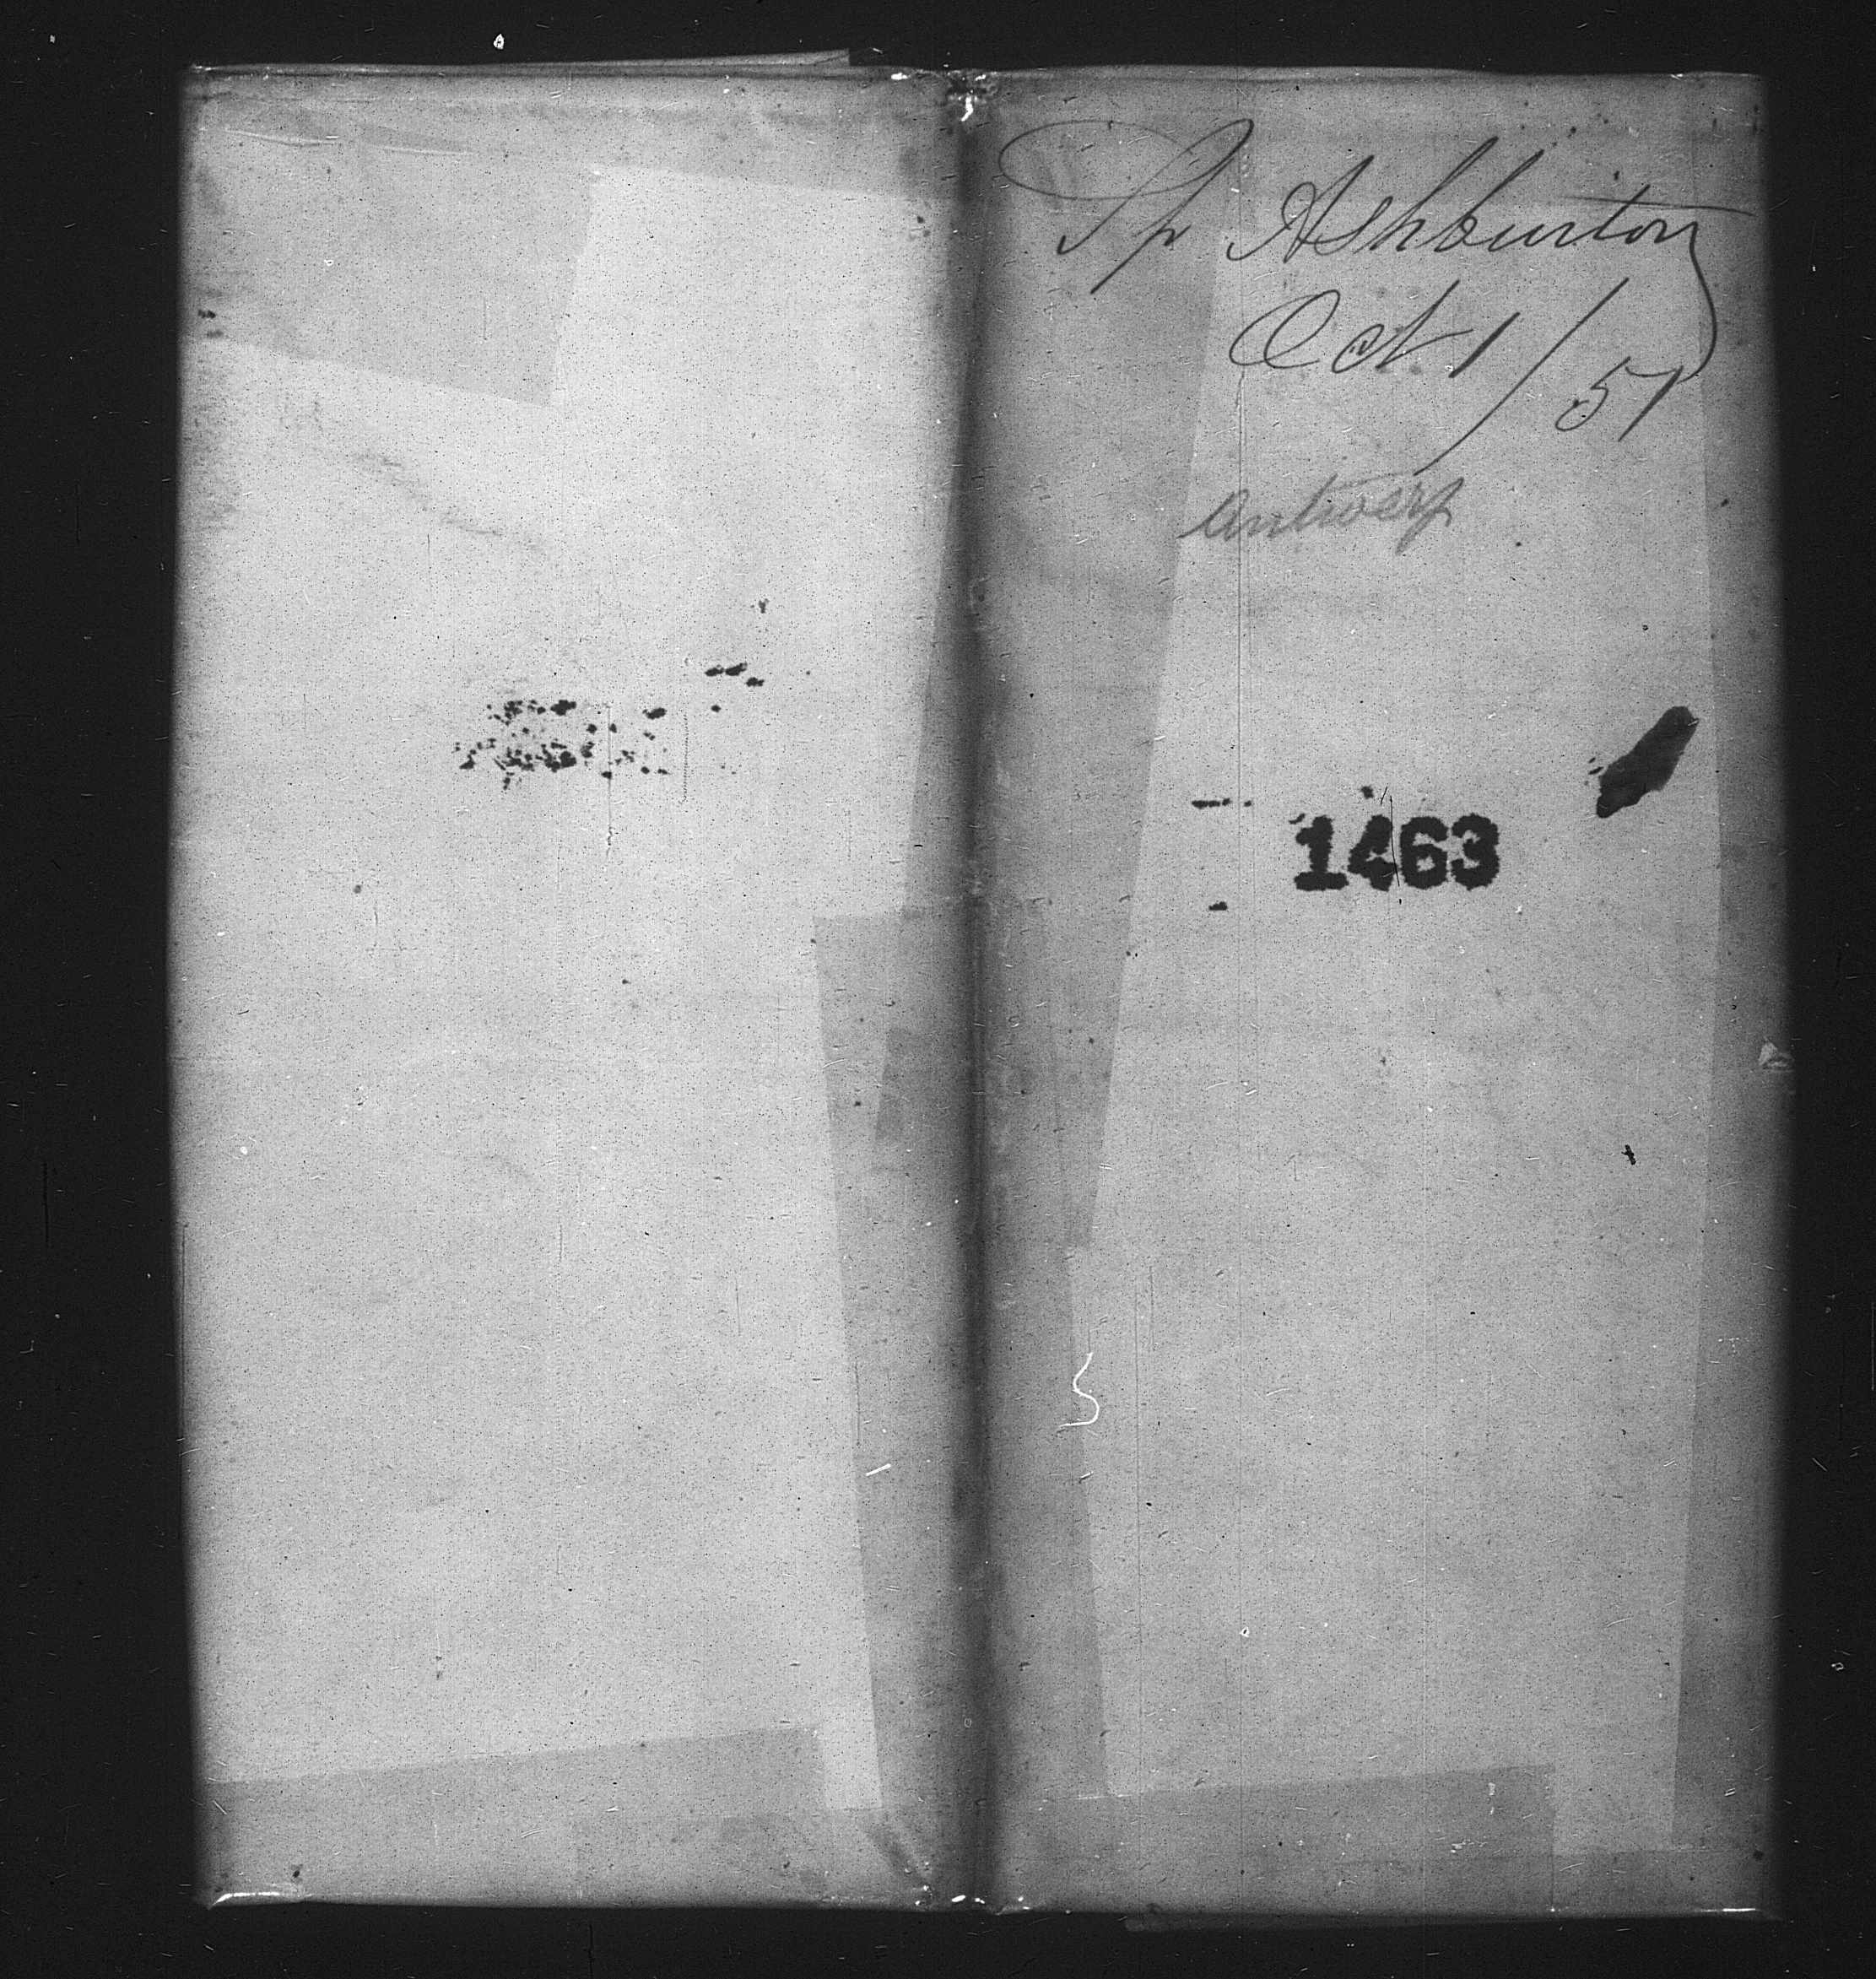 Sp Ashburton
Oct 1/51
Antwerp
1463